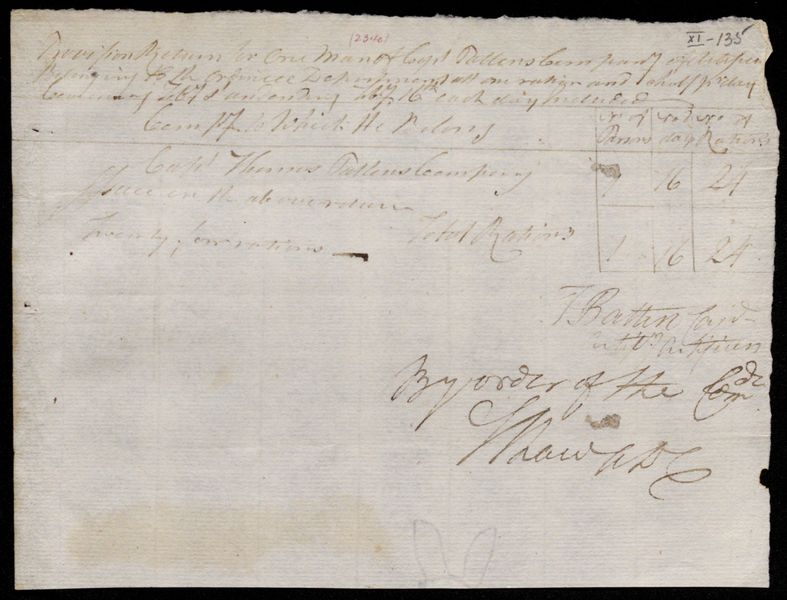 (2340)
XI-135
Provision Return for One Man of Capt Pattens Company of Artificers
Belonging to the Ordnance Department att one ration and a half pr day
Comencing Feby 1 and ending Feby 16th each day Included
Compy to Which He Belong
No of Persons
No of days
No of Rations
Capt Thomas Pattens Company
1 16 24
Issue on the above return
Twenty four rations
Total Rations
1 16 24
T Patten Capt
of Artificers
By order of the Comdt
S Shaw ADC